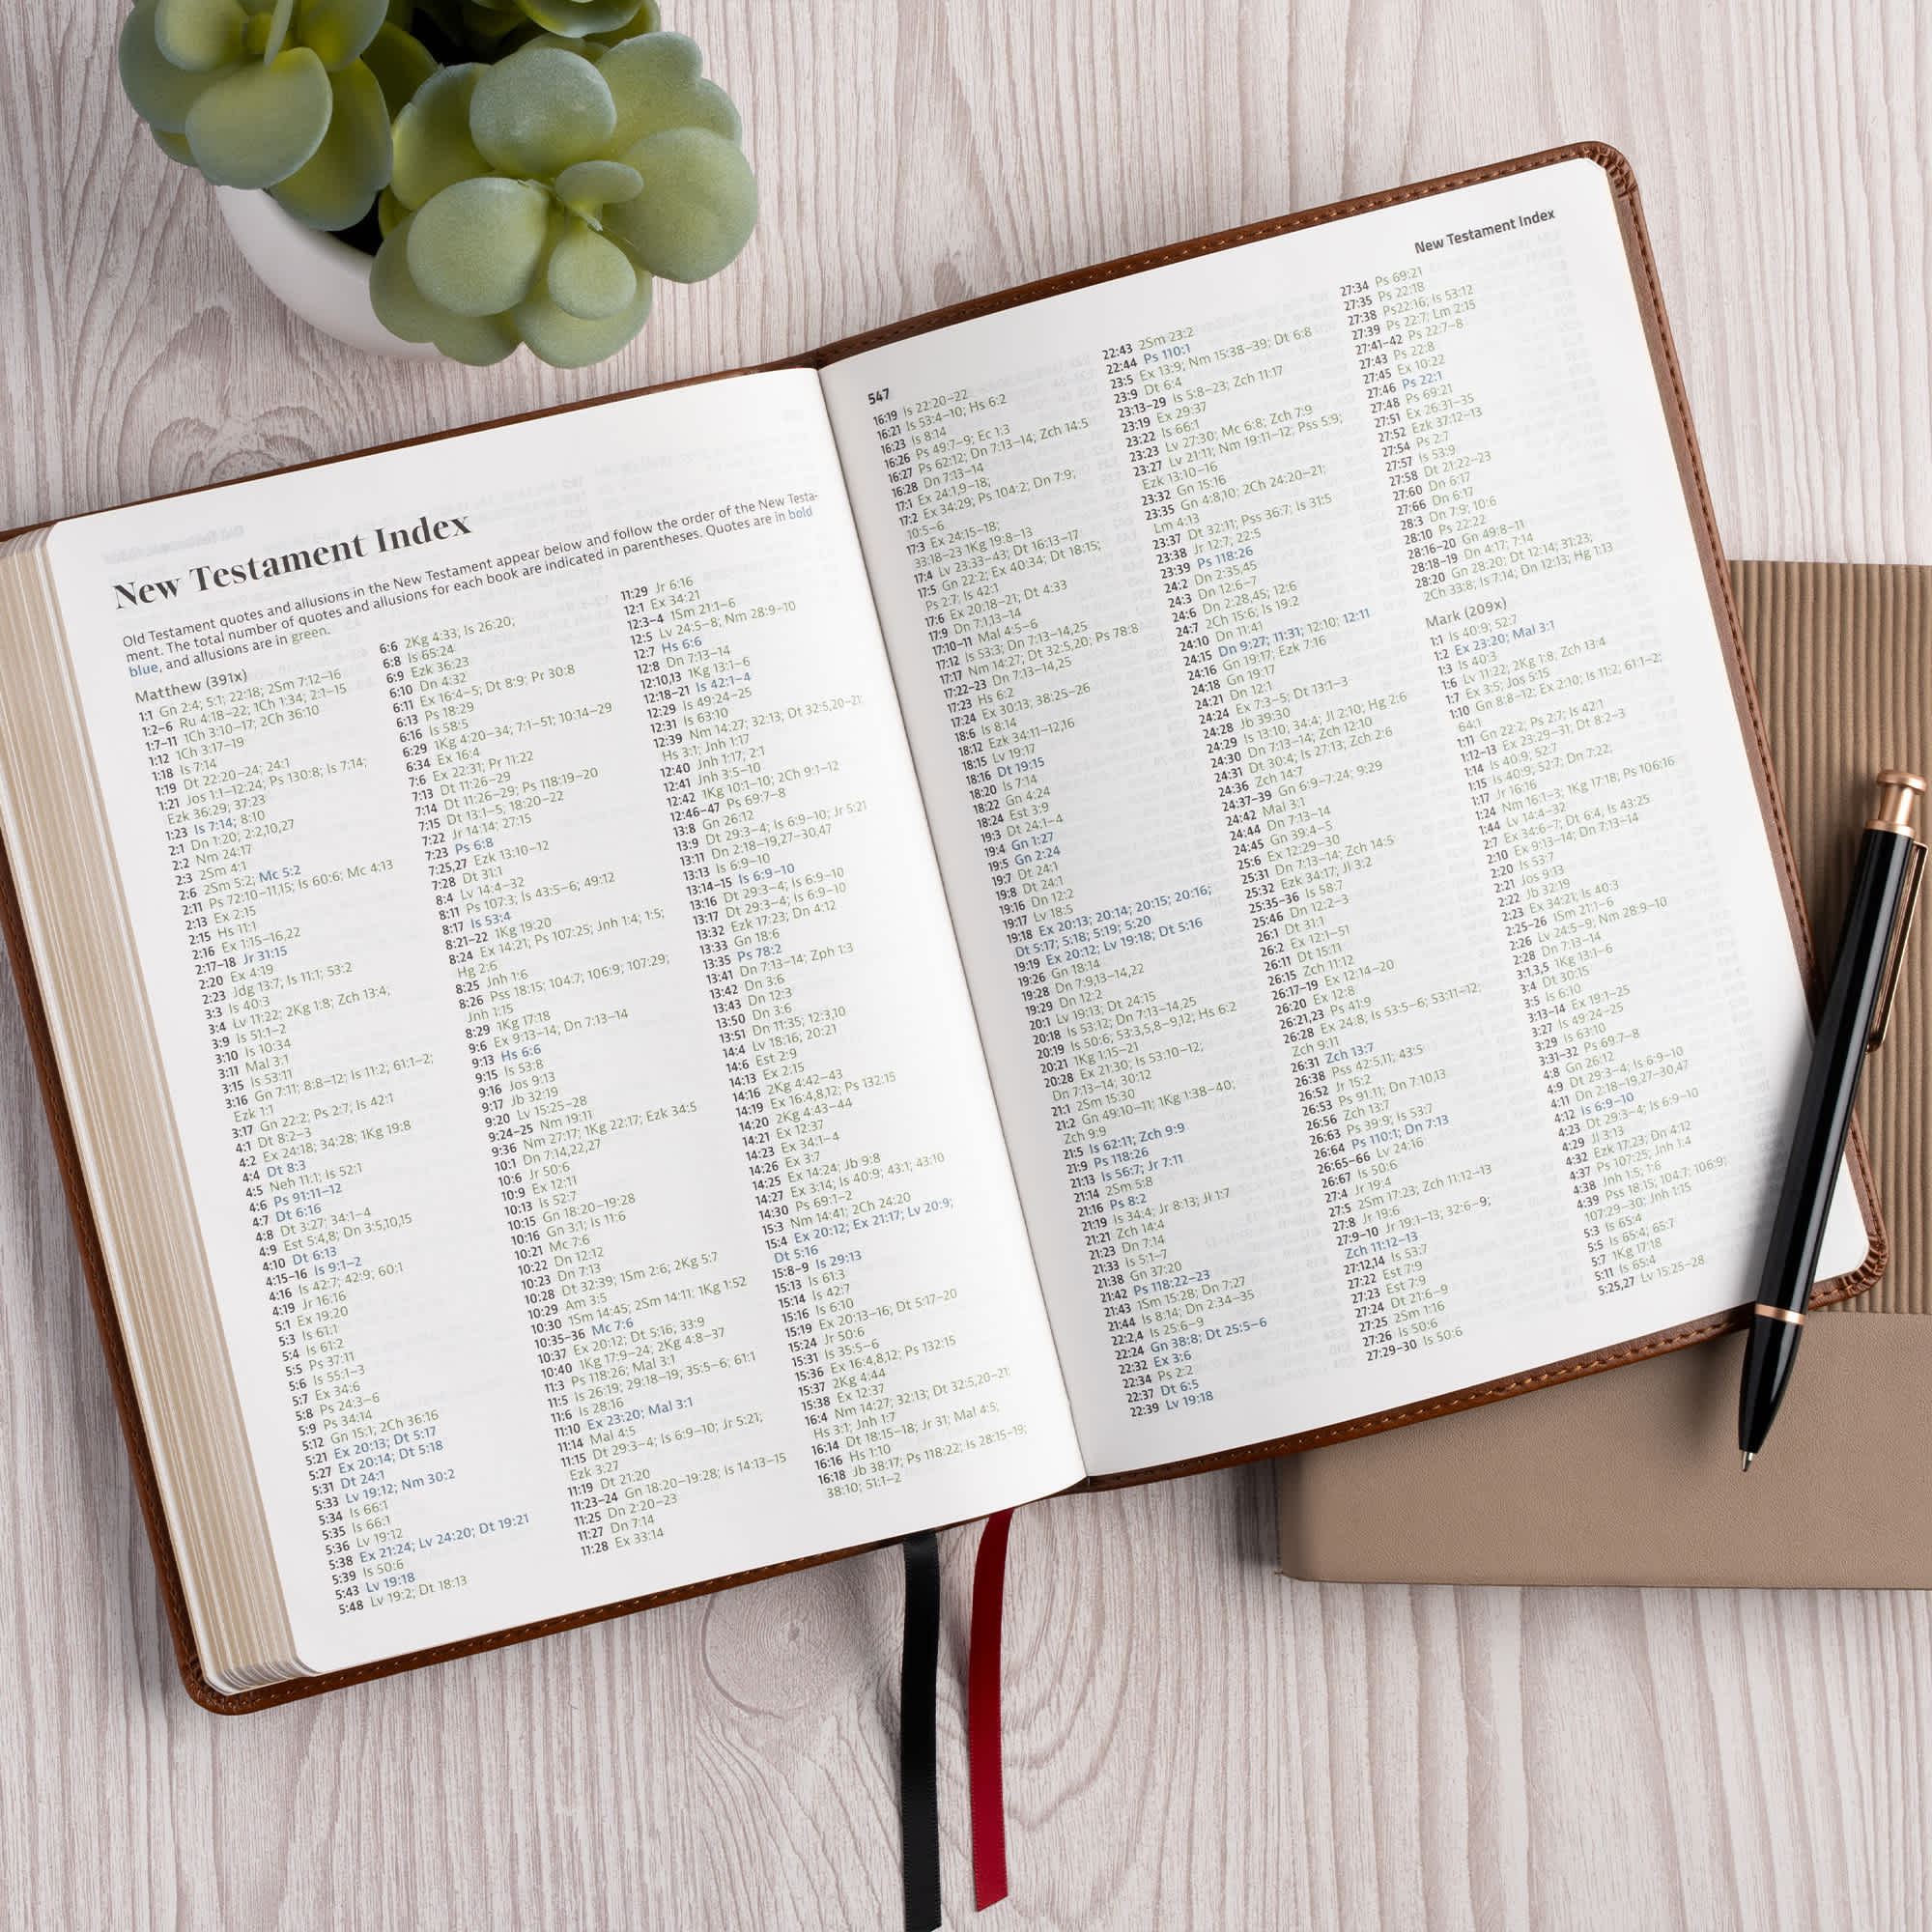 New Testament Index
Old Testament quotes and allusions in the New Testament appear below and follow the order of the New Testa-
ment. The total number of quotes and allusions for each book are indicated in parentheses. Quotes are in bold
blue, and allusions are in green.
Matthew (391x)
1:1 Gn 2:4; 5:1; 22:18; 2Sm 7:12–16
1:2–6 Ru 4:18–22; 1Ch 1:34; 2:1–15
1:7–11 1Ch 3:10–17; 2Ch 36:10
1:12 1Ch 3:17–19
1:18 Is 7:14
1:19 Dt 22:20–24; 24:1
1:21 Jos 1:1–12:24; Ps 130:8; Is 7:14;
Ezk 36:29; 37:23
1:23 Is 7:14; 8:10
2:1 Dn 1:20; 2:2,10,27
2:2 Nm 24:17
2:3 2Sm 4:1
2:6 2Sm 5:2; Mc 5:2
2:11 Ps 72:10–11,15; Is 60:6; Mc 4:13
2:13 Ex 2:15
2:15 Hs 11:1
2:16 Ex 1:15–16,22
2:17–18 Jr 31:15
2:20 Ex 4:19
2:23 Jdg 13:7; Is 11:1; 53:2
3:3 Is 40:3
3:4 Lv 11:22; 2Kg 1:8; Zch 13:4;
3:9 Is 51:1–2
3:10 Is 10:34
3:11 Mal 3:1
3:15 Is 53:11
3:16 Gn 7:11; 8:8–12; Is 11:2; 61:1–2;
Ezk 1:1
3:17 Gn 22:2; Ps 2:7; Is 42:1
4:1 Dt 8:2–3
4:2 Ex 24:18; 34:28; 1Kg 19:8
4:4 Dt 8:3
4:5 Neh 11:1; Is 52:1
4:6 Ps 91:11–12
4:7 Dt 6:16
4:8 Dt 3:27; 34:1–4
4:9 Est 5:4,8; Dn 3:5,10,15
4:10 Dt 6:13
4:15–16 Is 9:1–2
4:16 Is 42:7; 42:9; 60:1
4:19 Jr 16:16
5:1 Ex 19:20
5:3 Is 61:1
5:4 Is 61:2
5:5 Ps 37:11
5:6 Is 55:1–3
5:7 Ex 34:6
5:8 Ps 24:3–6
5:9 Ps 34:14
5:12 Gn 15:1; 2Ch 36:16
5:21 Ex 20:13; Dt 5:17
5:27 Ex 20:14; Dt 5:18
5:31 Dt 24:1
5:33 Lv 19:12; Nm 30:2
5:34 Is 66:1
5:35 Is 66:1
5:36 Lv 19:12
5:38 Ex 21:24; Lv 24:20; Dt 19:21
5:39 Is 50:6
5:43 Lv 19:18
5:48 Lv 19:2; Dt 18:13
6:6 2Kg 4:33; Is 26:20;
6:8 Is 65:24
6:9 Ezk 36:23
6:10 Dn 4:32
6:11 Ex 16:4–5; Dt 8:9; Pr 30:8
6:13 Ps 18:29
6:16 Is 58:5
6:29 1Kg 4:20–34; 7:1–51; 10:14–29
6:34 Ex 16:4
7:6 Ex 22:31; Pr 11:22
7:13 Dt 11:26–29
7:14 Dt 11:26–29; Ps 118:19–20
7:15 Dt 13:1–5, 18:20–22
7:22 Jr 14:14; 27:15
7:23 Ps 6:8
7:25,27 Ezk 13:10–12
7:28 Dt 31:1
8:4 Lv 14:4–32
8:11 Ps 107:3; Is 43:5–6; 49:12
8:17 Is 53:4
8:21–22 1Kg 19:20
8:24 Ex 14:21; Ps 107:25; Jnh 1:4; 1:5;
Hg 2:6
8:25 Jnh 1:6
8:26 Pss 18:15; 104:7; 106:9; 107:29;
Jnh 1:15
8:29 1Kg 17:18
9:6 Ex 9:13–14; Dn 7:13–14
9:13 Hs 6:6
9:15 Is 53:8
9:16 Jos 9:13
9:17 Jb 32:19
9:20 Lv 15:25–28
9:24–25 Nm 19:11
9:36 Nm 27:17; 1Kg 22:17; Ezk 34:5
10:1 Dn 7:14,22,27
10:6 Jr 50:6
10:9 Ex 12:11
10:13 Is 52:7
10:15 Gn 18:20–19:28
10:16 Gn 3:1; Is 11:6
10:21 Mc 7:6
10:22 Dn 12:12
10:23 Dn 7:13
10:28 Dt 32:39; 1Sm 2:6; 2Kg 5:7
10:29 Am 3:5
10:30 1Sm 14:45; 2Sm 14:11; 1Kg 1:52
10:35–36 Mc 7:6
10:37 Ex 20:12; Dt 5:16; 33:9
10:40 1Kg 17:9–24; 2Kg 4:8–37
11:3 Ps 118:26; Mal 3:1
11:5 Is 26:19; 29:18–19; 35:5–6; 61:1
11:6 Is 28:16
11:10 Ex 23:20; Mal 3:1
11:14 Mal 4:5
11:15 Dt 29:3–4; Is 6:9–10; Jr 5:21;
Ezk 3:27
11:19 Dt 21:20
11:23–24 Gn 18:20–19:28; Is 14:13–15
11:25 Dn 2:20–23
11:27 Dn 7:14
11:28 Ex 33:14
11:29 Jr 6:16
12:1 Ex 34:21
12:3–4 1Sm 21:1–6
12:5 Lv 24:5–8; Nm 28:9–10
12:7 Hs 6:6
12:8 Dn 7:13–14
12:10,13 1Kg 13:1–6
12:18–21 Is 42:1–4
12:29 Is 49:24–25
12:31 Is 63:10
12:39 Nm 14:27; 32:13; Dt 32:5,20–21;
Hs 3:1; Jnh 1:17
12:40 Jnh 1:17; 2:1
12:41 Jnh 3:5–10
12:42 1Kg 10:1–10; 2Ch 9:1–12
12:46–47 Ps 69:7–8
13:8 Gn 26:12
13:9 Dt 29:3–4; Is 6:9–10; Jr 5:21
13:11 Dn 2:18–19,27–30,47
13:13 Is 6:9–10
13:14–15 Is 6:9–10
13:16 Dt 29:3–4; Is 6:9–10
13:17 Dt 29:3–4; Is 6:9–10
13:32 Ezk 17:23; Dn 4:12
13:33 Gn 18:6
13:35 Ps 78:2
13:41 Dn 7:13–14; Zph 1:3
13:42 Dn 3:6
13:43 Dn 12:3
13:50 Dn 3:6
13:51 Dn 11:35; 12:3,10
14:4 Lv 18:16; 20:21
14:6 Est 2:9
14:13 Ex 2:15
14:16 2Kg 4:42–43
14:19 Ex 16:4,8,12; Ps 132:15
14:20 2Kg 4:43–44
14:21 Ex 12:37
14:23 Ex 34:1–4
14:26 Ex 3:7
14:25 Ex 14:24; Jb 9:8
14:27 Ex 3:14; Is 40:9; 43:1; 43:10
14:30 Ps 69:1–2
15:3 Nm 14:41; 2Ch 24:20
15:4 Ex 20:12; Ex 21:17; Lv 20:9;
Dt 5:16
15:8–9 Is 29:13
15:13 Is 61:3
15:14 Is 42:7
15:16 Is 6:10
15:19 Ex 20:13–16; Dt 5:17–20
15:24 Jr 50:6
15:31 Is 35:5–6
15:36 Ex 16:4,8,12; Ps 132:15
15:37 2Kg 4:44
15:38 Ex 12:37
16:4 Nm 14:27; 32:13; Dt 32:5,20–21;
Hs 3:1; Jnh 1:7
16:14 Dt 18:15–18; Jr 31; Mal 4:5;
16:16 Hs 1:10
16:18 Jb 38:17; Ps 118:22; Is 28:15–19;
38:10; 51:1–2
547
New Testament Index
16:19 Is 22:20–22
16:21 Is 53:4–10; Hs 6:2
16:23 Is 8:14
16:26 Ps 49:7–9; Ec 1:3
16:27 Ps 62:12; Dn 7:13–14; Zch 14:5
16:28 Dn 7:13–14
17:1 Ex 24:1,9–18;
17:2 Ex 34:29; Ps 104:2; Dn 7:9;
10:5–6
17:3 Ex 24:15–18;
33:18–23 1Kg 19:8–13
17:4 Lv 23:33–43; Dt 16:13–17
17:5 Gn 22:2; Ex 40:34; Dt 18:15;
Ps 2:7; Is 42:1
17:6 Ex 20:18–21; Dt 4:33
17:9 Dn 7:1,13–14
17:10–11 Mal 4:5–6
17:12 Is 53:3; Dn 7:13–14,25
17:17 Nm 14:27; Dt 32:5,20; Ps 78:8
17:22–23 Dn 7:13–14,25
17:23 Hs 6:2
17:24 Ex 30:13; 38:25–26
18:6 Is 8:14
18:12 Ezk 34:11–12,16
18:15 Lv 19:17
18:16 Dt 19:15
18:20 Is 7:14
18:22 Gn 4:24
18:24 Est 3:9
19:3 Dt 24:1–4
19:4 Gn 1:27
19:5 Gn 2:24
19:7 Dt 24:1
19:8 Dt 24:1
19:16 Dn 12:2
19:17 Lv 18:5
19:18 Ex 20:13; 20:14; 20:15; 20:16;
Dt 5:17; 5:18; 5:19; 5:20
19:19 Ex 20:12; Lv 19:18; Dt 5:16
19:26 Gn 18:14
19:28 Dn 7:9,13–14,22
19:29 Dn 12:2
20:1 Lv 19:13; Dt 24:15
20:18 Is 53:12; Dn 7:13–14,25
20:19 Is 50:6; 53:3,5,8–9,12; Hs 6:2
20:21 1Kg 1:15–21
20:28 Ex 21:30; Is 53:10–12;
Dn 7:13–14; 30:12
21:1 2Sm 15:30
21:2 Gn 49:10–11; 1Kg 1:38–40;
Zch 9:9
21:5 Is 62:11; Zch 9:9
21:9 Ps 118:26
21:13 Is 56:7; Jr 7:11
21:14 2Sm 5:8
21:16 Ps 8:2
21:19 Is 34:4; Jr 8:13; Jl 1:7
21:21 Zch 14:4
21:23 Dn 7:14
21:33 Is 5:1–7
21:38 Gn 37:20
21:42 Ps 118:22–23
21:43 1Sm 15:28; Dn 7:27
21:44 Is 8:14; Dn 2:34–35
22:2,4 Is 25:6–9
22:24 Gn 38:8; Dt 25:5–6
22:32 Ex 3:6
22:34 Ps 2:2
22:37 Dt 6:5
22:39 Lv 19:18
22:43 2Sm 23:2
22:44 Ps 110:1
23:5 Ex 13:9; Nm 15:38–39; Dt 6:8
23:9 Dt 6:4
23:13–29 Is 5:8–23; Zch 11:17
23:19 Ex 29:37
23:22 Is 66:1
23:23 Lv 27:30; Mc 6:8; Zch 7:9
23:27 Lv 21:11; Nm 19:11–12; Pss 5:9;
Ezk 13:10–16
23:32 Gn 15:16
23:35 Gn 4:8,10; 2Ch 24:20–21;
Lm 4:13
23:37 Dt 32:11; Pss 36:7; Is 31:5
23:38 Jr 12:7; 22:5
23:39 Ps 118:26
24:2 Dn 2:35,45
24:3 Dn 12:6–7
24:6 Dn 2:28,45; 12:6
24:7 2Ch 15:6; Is 19:2
24:10 Dn 11:41
24:15 Dn 9:27; 11:31; 12:10; 12:11
24:16 Gn 19:17; Ezk 7:16
24:18 Gn 19:17
24:21 Dn 12:1
24:24 Ex 7:3–5; Dt 13:1–3
24:28 Jb 39:30
24:29 Is 13:10; 34:4; Jl 2:10; Hg 2:6
24:30 Dn 7:13–14; Zch 12:10
24:31 Dt 30:4; Is 27:13; Zch 2:6
24:36 Zch 14:7
24:37–39 Gn 6:9–7:24; 9:29
24:42 Mal 3:1
24:44 Dn 7:13–14
24:45 Gn 39:4–5
25:6 Ex 12:29–30
25:31 Dn 7:13–14; Zch 14:5
25:32 Ezk 34:17; Jl 3:2
25:35–36 Is 58:7
25:46 Dn 12:2–3
26:1 Dt 31:1
26:2 Ex 12:1–51
26:11 Dt 15:11
26:15 Zch 11:12
26:17–19 Ex 12:14–20
26:20 Ex 12:8
26:21,23 Ps 41:9
26:28 Ex 24:8; Is 53:5–6; 53:11–12;
Zch 9:11
26:31 Zch 13:7
26:38 Pss 42:5,11; 43:5
26:52 Jr 15:2
26:53 Ps 91:11; Dn 7:10,13
26:56 Zch 13:7
26:63 Ps 39:9; Is 53:7
26:64 Ps 110:1; Dn 7:13
26:65–66 Lv 24:16
26:67 Is 50:6
27:4 Jr 19:4
27:5 2Sm 17:23; Zch 11:12–13
27:8 Jr 19:6
27:9–10 Jr 19:1–13; 32:6–9;
Zch 11:12–13
27:12,14 Is 53:7
27:22 Est 7:9
27:23 Est 7:9
27:24 Dt 21:6–9
27:25 2Sm 1:16
27:26 Is 50:6
27:29–30 Is 50:6
27:34 Ps 69:21
27:35 Ps 22:18
27:38 Ps22:16; Is 53:12
27:39 Ps 22:7; Lm 2:15
27:41–42 Ps 22:7–8
27:43 Ps 22:8
27:45 Ex 10:22
27:46 Ps 22:1
27:48 Ps 69:21
27:51 Ex 26:31–35
27:52 Ezk 37:12–13
27:54 Ps 2:7
27:57 Is 53:9
27:58 Dt 21:22–23
27:60 Dn 6:17
27:66 Dn 6:17
28:3 Dn 7:9; 10:6
28:10 Ps 22:22
28:16–20 Gn 49:8–11
28:18–19 Dn 4:17; 7:14
28:20 Gn 28:20; Dt 12:14; 31:23;
2Ch 33:8; Is 7:14; Dn 12:13; Hg 1:13
Mark (209x)
1:1 Is 40:9; 52:7
1:2 Ex 23:20; Mal 3:1
1:3 Is 40:3
1:6 Lv 11:22; 2Kg 1:8; Zch 13:4
1:7 Ex 3:5; Jos 5:15
1:10 Gn 8:8–12; Ex 2:10; Is 11:2; 61:1–2;
64:1
1:11 Gn 22:2; Ps 2:7; Is 42:1
1:12–13 Ex 23:29–31; Dt 8:2–3
1:14 Is 40:9; 52:7
1:15 Is 40:9; 52:7; Dn 7:22;
1:17 Jr 16:16
1:24 Nm 16:1–3; 1Kg 17:18; Ps 106:16
1:44 Lv 14:4–32
2:7 Ex 34:6–7; Dt 6:4; Is 43:25
2:10 Ex 9:13–14; Dn 7:13–14
2:20 Is 53:7
2:21 Jos 9:13
2:22 Jb 32:19
2:23 Ex 34:21; Is 40:3
2:25–26 1Sm 21:1–6
2:26 Lv 24:5–9; Nm 28:9–10
2:28 Dn 7:13–14
3:1,3,5 1Kg 13:1–6
3:4 Dt 30:15
3:5 Is 6:10
3:13–14 Ex 19:1–25
3:27 Is 49:24–25
3:29 Is 63:10
3:31–32 Ps 69:7–8
4:8 Gn 26:12
4:9 Dt 29:3–4; Is 6:9–10
4:11 Dn 2:18–19,27–30,47
4:12 Is 6:9–10
4:23 Dt 29:3–4; Is 6:9–10
4:29 Jl 3:13
4:32 Ezk 17:23; Dn 4:12
4:37 Ps 107:25; Jnh 1:4
4:38 Jnh 1:5; 1:6
4:39 Pss 18:15; 104:7; 106:9;
107:29–30; Jnh 1:15
5:3 Is 65:4
5:5 Is 65:4; 65:7
5:7 1Kg 17:18
5:11 Is 65:4
5:25,27 Lv 15:25–28